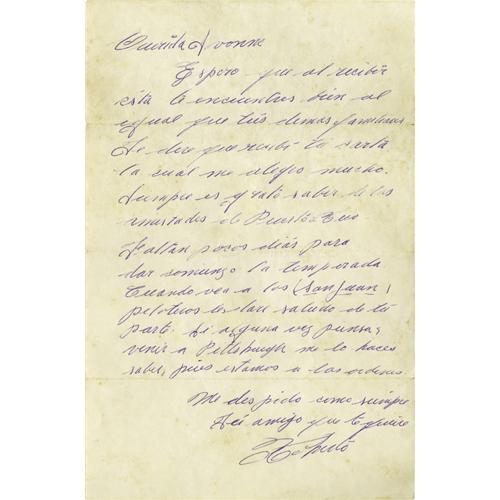 Querida Yvonne
Espero que al recibir
esta te encuentres bien al
igual que tus demas familiares
Te dire que recibi tu carta
la cual me alegro mucho.
Siempre es grato saber de las
amistades de Puerto Rico
Faltan pocos dias para
dar comienzo la temporada
Cuando vea a los (San Juan)
peloteros les dare saludo de tu
parte. Si alguna vez piensas
venir a Pittsburgh me lo haces
saber, pues estamos a las ordenes
Me despido como siempre
tu amigo que te quiere
Roberto